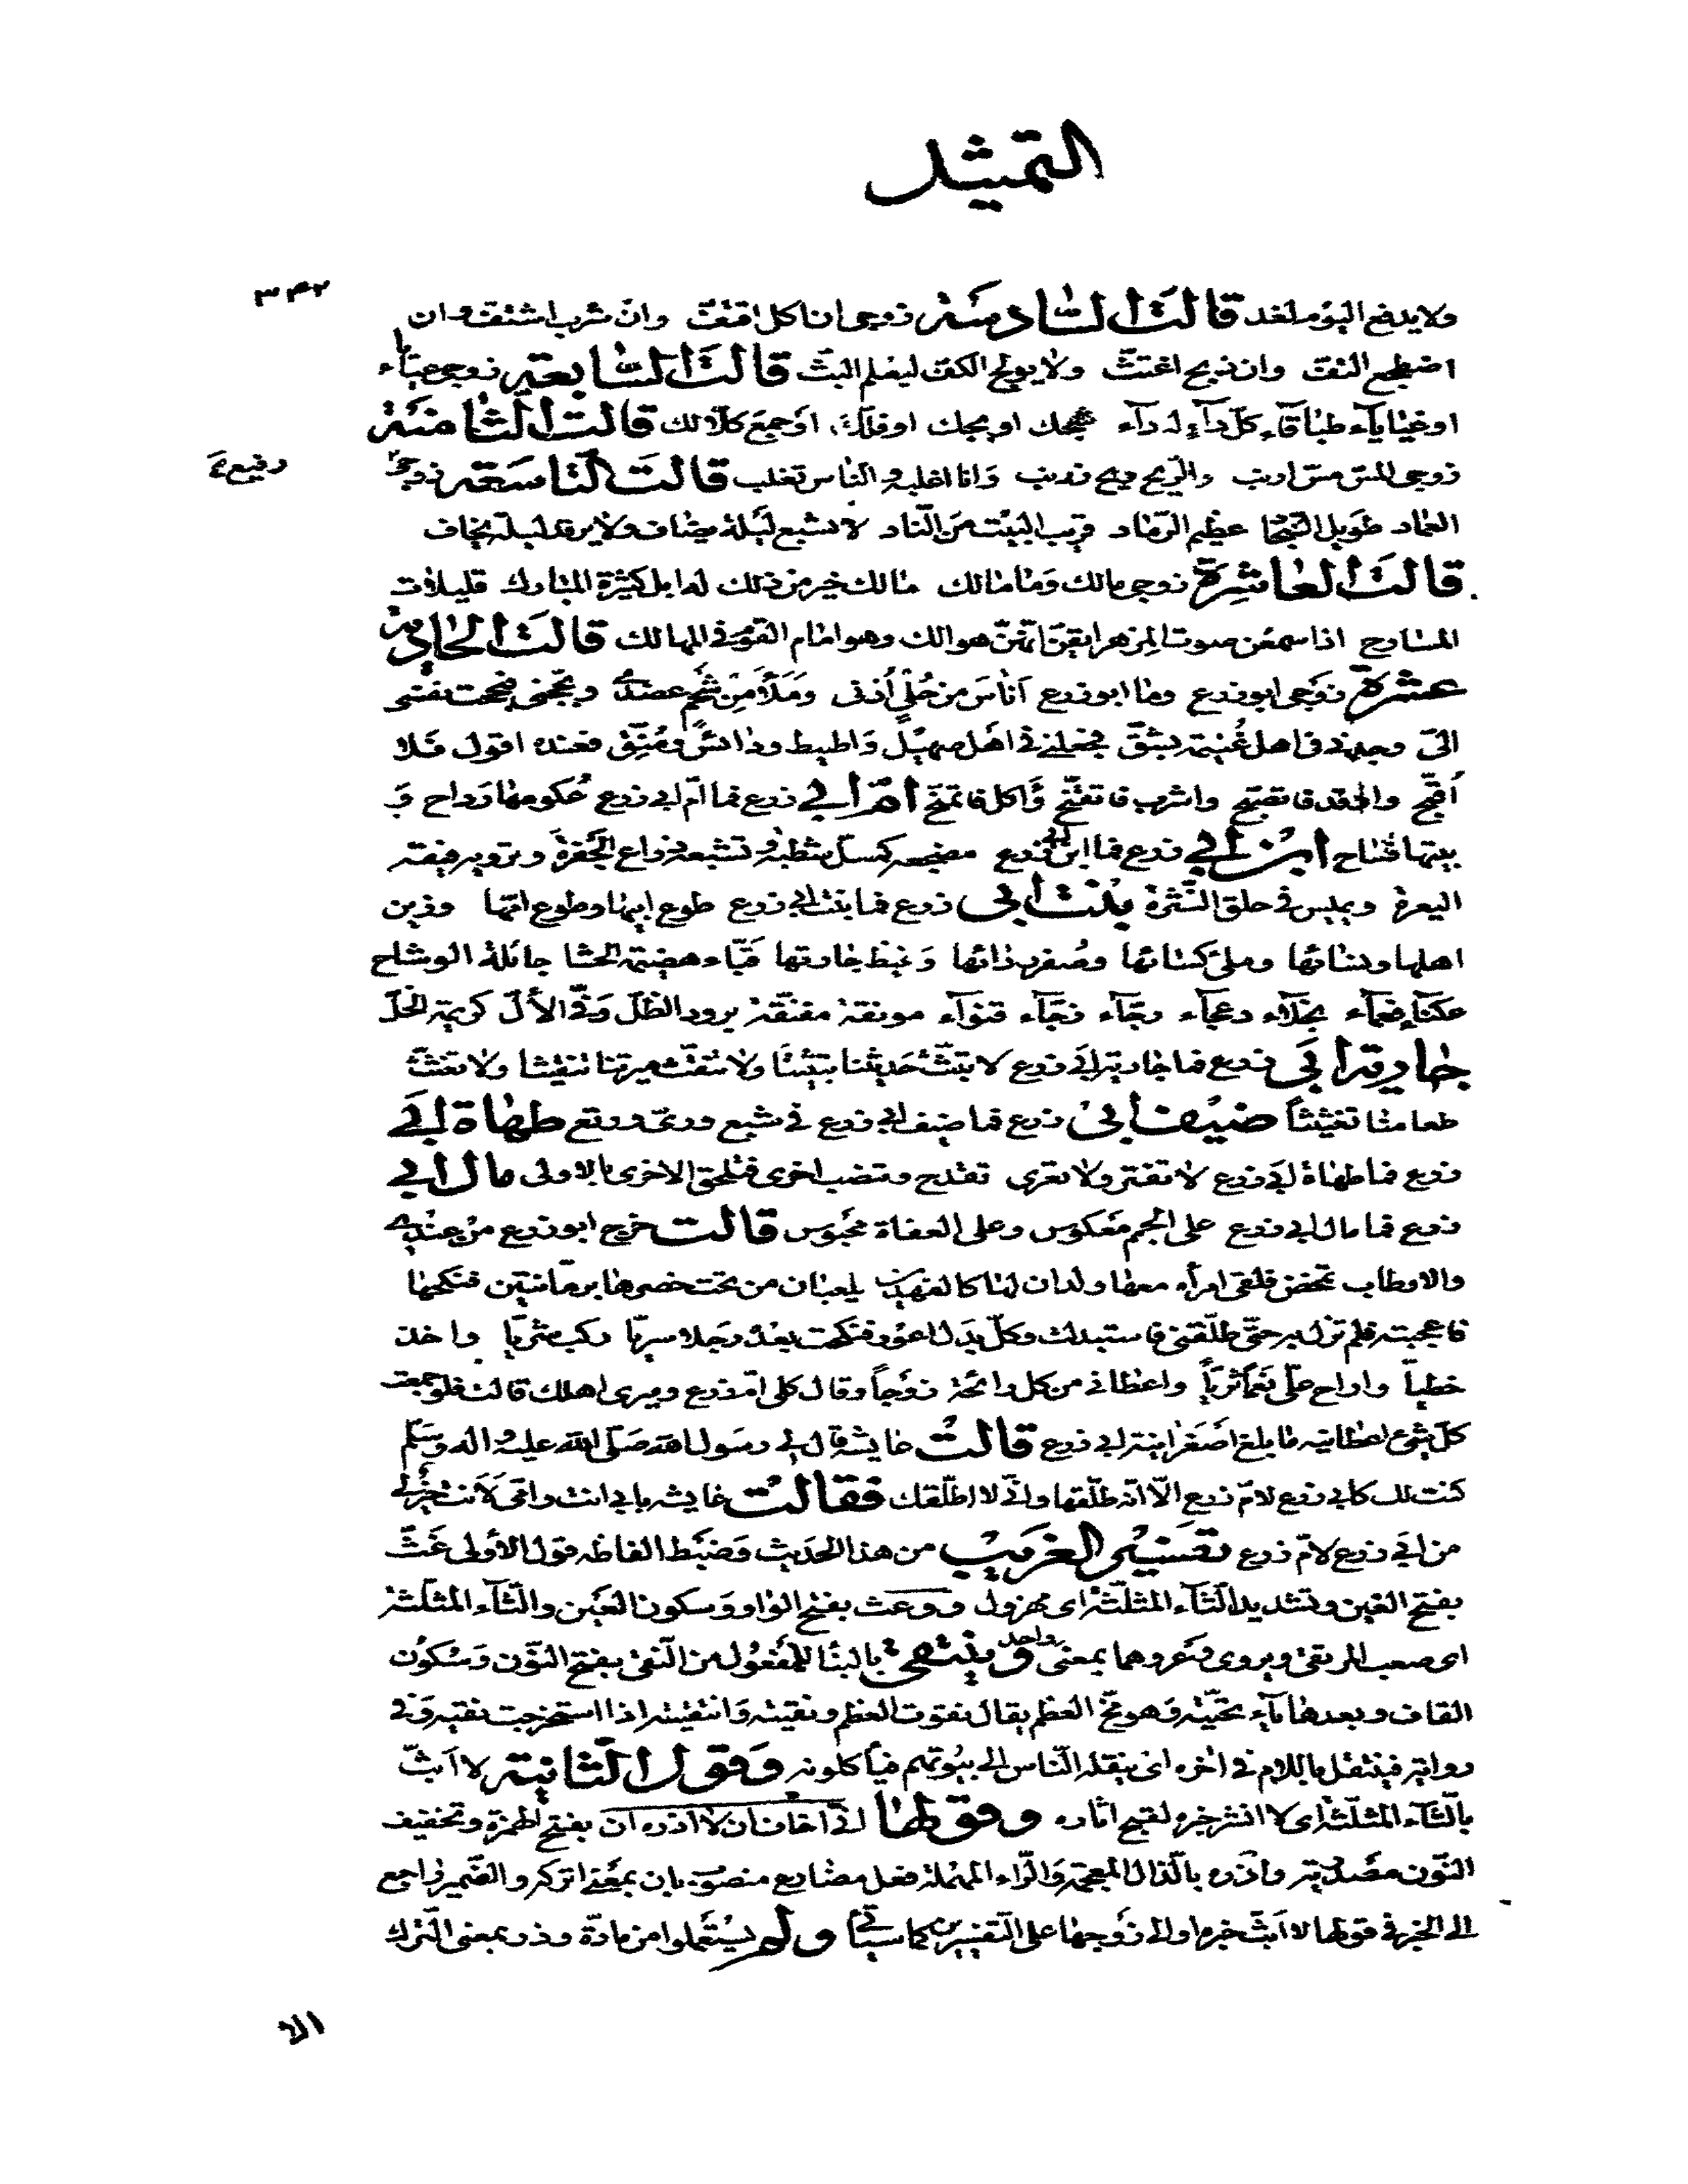 التمثيل
٣٤٢
ولا يدفع اليوم لغد قالت السادسة زوجى ان اكل اقتفّ وان شرب اشتف وان
اضطجع التفّ وان ذبح اغتثّ ولا يولج الكف ليعلم البثّ قالت السابعة زوجى عياياء
او غياياء طباقاء كل داء له داء شجك او بجك او فلك او جمع كلا لك قالت الثامنة
زوجى المس مس ارنب والريح ريح زرنب وانا اغلبه والناس تغلب قالت التاسعة زوجى
رفيع
العماد طويل النجاد عظيم الرماد قريب البيت من الناد لا يشبع ليلة يضاف ولا يرقد ليلة يخاف
قالت العاشرة زوجى مالك وما مالك مالك خير من ذلك له ابل كثيرة المبارك قليلات
المسارح اذا سمعن صوت المزهر ايقن انهن هوالك وهو امام القوم فى المهالك قالت الحادية
عشرة زوجى ابو زرع وما ابو زرع اناس من حُلىٍ اُذنى ومَلَأَ مِن شَحمٍ عضدى وبجحنى فبجحت نفسى
الىّ وجدنى فى اهل غُنيمة بشقّ فجعلنى فى اهل صهيل واطيط ودائس ومُنقّ فعنده اقول فلا
اُقبّح وارقد فاتصبح واشرب فاتقنّح وآكل فاتمنّح امّ ابى زرع فما امّ ابى زرع عُكومها رداح و
بيتها فساح ابن ابى زرع فما ابن ابى زرع مضجعه كمسلّ شطبة وتشبعه ذراع الجَفرة وترويه فيقة
اليعرة ويميس فى حلق النّثرة بنت ابى زرع فما بنت ابى زرع طوع ابيها وطوع امّها وزين
اهلها ونسائها وملئ كسائها وصُفر ردائها وغيظ جارتها قبّاء هضيمة الحشا جائلة الوشاح
عكناء فعماء نجلاء دعجاء رجّاء زجّاء قنواء مونقة مفنّقة برود الظلّ وفىّ الألّ كريمة الخلّ
جارية ابى زرع فما جارية ابى زرع لا تبثّ حديثنا تبثيثا ولا تنقّث ميرتنا تنقيثا ولا تغثّث
طعامنا تغثيثاً ضيف ابى زرع فما ضيف ابى زرع فى شبع ورىّ ورتع طهاة ابى
زرع فما طهاة ابى زرع لا تفتر ولا تعرى تقدح وتنصب اخرى فتلحق الاخرى بالاولى مال ابى
زرع فما مال ابى زرع على الجمم معكوس وعلى العفاة محبوس قالت خرج ابو زرع من عندى
والاوطاب تمخض فلقى امرأه معها ولدان لها كالفهدين يلعبان من تحت خصرها برمانتين فنكحها
فاعجبته فلم تزل به حتى طلّقنى فاستبدلت وكلّ بدل اعور فنكحت بعده رجلا سريّا ركب شريّا واخذ
خطيّاً واراح علىّ نعماً ثرياً واعطانى من كل رائحة زوجاً وقال كلى امّ زرع وميرى اهلك قالت فلو جمعت
كلّ شئ اعطانيه ما بلغ اصغر انية ابى زرع قالت عايشة قال لى رسول الله صلّى الله عليه واله وسلّم
كنت لك كابى زرع لامّ زرع الّا انه طلّقها وانى لا اطلّقك فقالت عايشه بابى انت وامّى لأنت خير لى
من ابى زرع لامّ زرع تفسير الغريب من هذا الحديث وضبط الفاظه قول الأولى غَثّ
بفتح الغين وتشديد الثآء المثلّثة اى مهزول ووعث بفتح الواو وسكون العين والثآء المثلّثة
اى صعب المرتقى ويروى وعر وهما بمعنى واحد وينتقى بالبنا للمفعول من النّقى بفتح النّون وسكون
القاف وبعدها ياء تحتيّة وهو مخّ العظم يقال نقوت العظم ونقيته وانتقيته اذا استخرجت نقيه وفى
رواية فينتقل باللام فى اخره اى ينقله النّاس الى بيوتهم فيأكلونه وقول الثانية لا ابثّ
بالثآء المثلّثة اى لا انشر خبره لقبح اثاره وقولها انى اخاف ان لا اذره ان بفتح الهمزة وتخفيف
النون مصدرية واذره بالذال المعجمة والرّاء المهملة فعل مضارع منصوب بان بمعنى اتركه والضمير راجع
الى الخبر فى قولها لا ابثّ خبره او الى زوجها على التفسيرين كما سيأتى ولم يستعملوا من مادّة وذر بمعنى الترك
الا